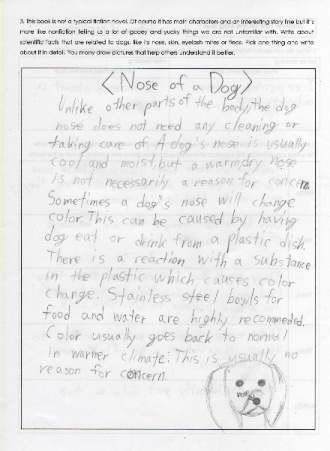 3. This book is not a typical fiction novel. Of course it has main characters and an interesting story line but it's
more like nonfiction telling us a lot of gooey and yucky things we are not unfamiliar with. Write about
scientific facts that are related to dogs, like its nose, skin, eyelash mites or fleas. Pick one thing and write
about it in detail. You many draw pictures that help others understand it better.
<Nose of a Dog>
Unlike other parts of the body, the dog
nose does not need any cleaning or
taking care of. A dog's nose is usually
cool and moist, but a warm, dry nose
is not necessarily a reason for concern.
Sometimes a dog's nose will change
color. This can be caused by having
dog eat or drink from a plastic dish.
There is a reaction with a substance
in the plastic which causes color
change. Stainless steel bowls for
food and water are highly recommeded.
Color usually goes back to normal
in warmer climate. This is usually no
reason for concern.